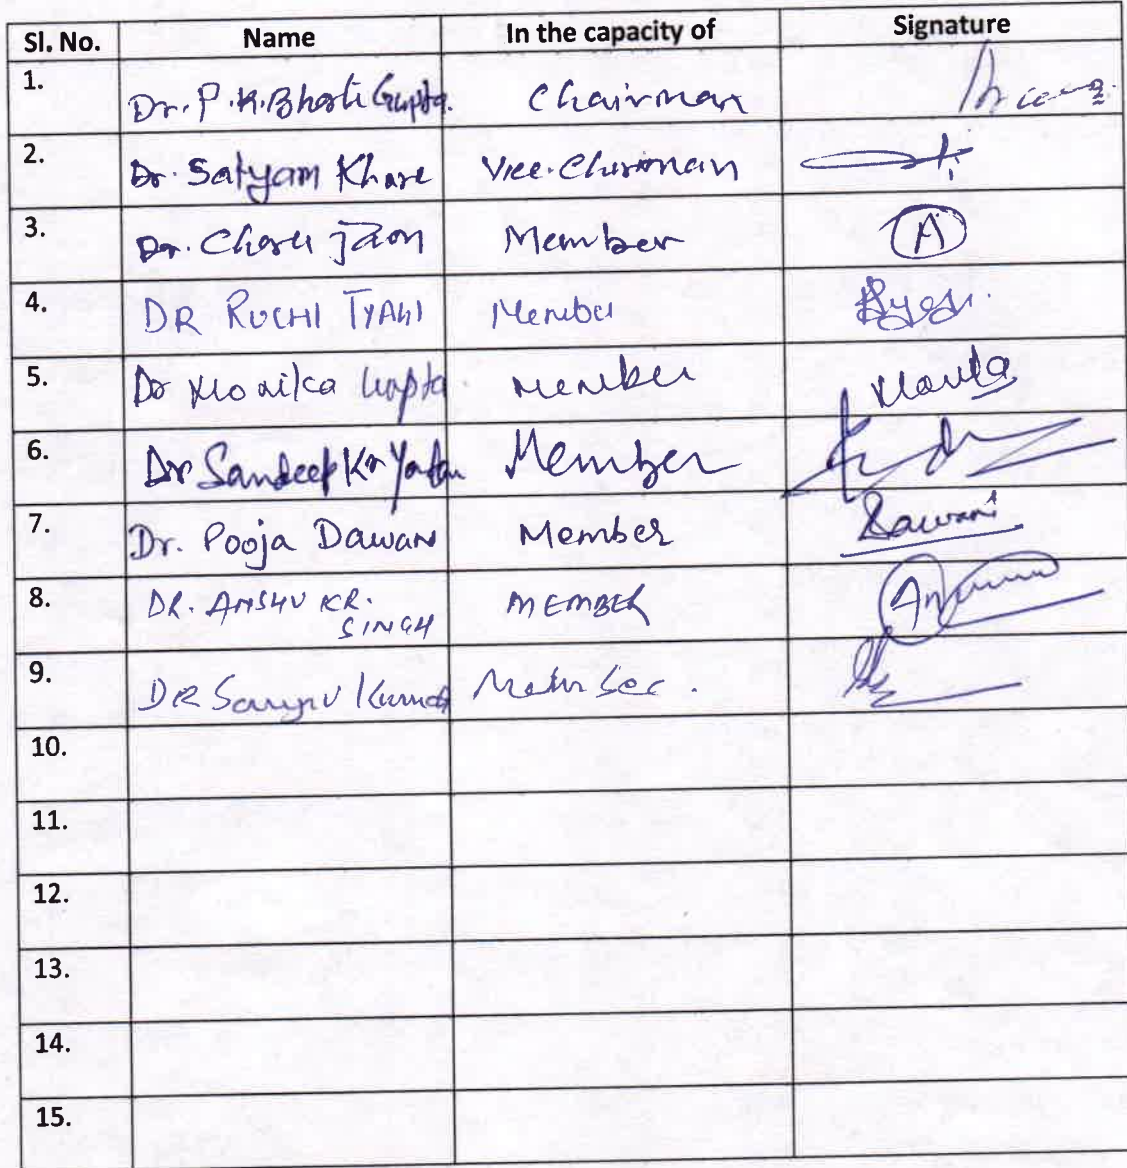 Sl. No. Name In the capacity of Signature
1. Dr. P. K. Bharti Gupta. Chairman
2. Dr. Satyam Khare Vice. Chirman
3. Dr. Charu Jain Member A
4. DR RUCHI TYAGI Member
5. Dr Monika Gupta Member Monika
6. Dr Sandeep Kr Yadav Member
7. Dr. Pooja Dawani Member Dawani
8. DR. ANSHU KR. MEMBER
SINGH
9. DR Sanjiv Kumar Sec.
10.
11.
12.
13.
14.
15.